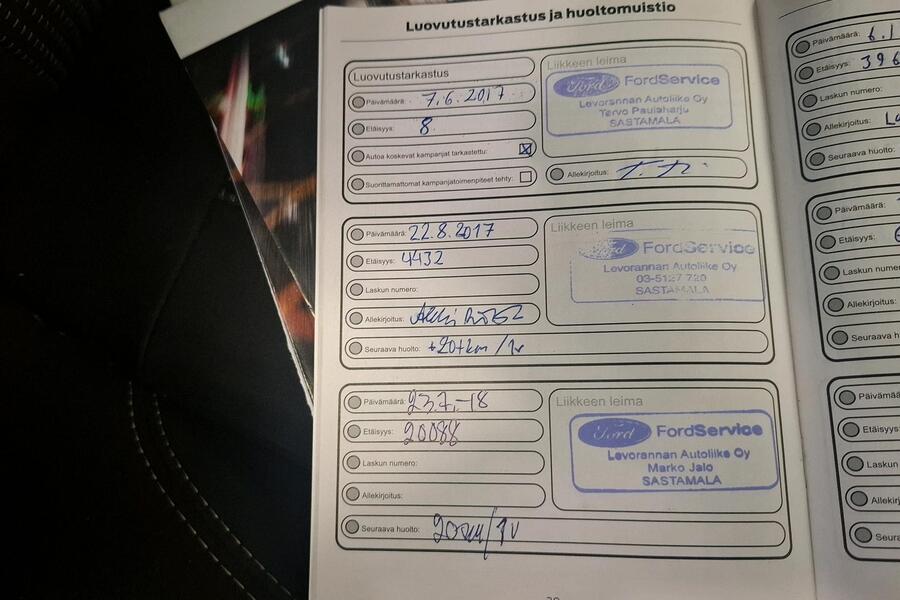 Luovutustarkastus ja huoltomuistio
Luovutustarkastus
Päivämäärä: 7.6.2017
Etäisyys: 8
Autoa koskevat kampanjat tarkastettu:
Suorittamattomat kampanjatoimenpiteet tehty:
Liikkeen leima
Ford FordService
Levorannan Autoliike Oy
Tervo Paulaharju
SASTAMALA
Allekirjoitus:
Päivämäärä: 22.8.2017
Etäisyys: 4432
Laskun numero:
Allekirjoitus:
Seuraava huolto: +20tkm/1v
Liikkeen leima
Ford FordService
Levorannan Autoliike Oy
03-5127 720
SASTAMALA
Päivämäärä: 23.7.-18
Etäisyys: 20088
Laskun numero:
Allekirjoitus:
Seuraava huolto:
Liikkeen leima
Ford FordService
Levorannan Autoliike Oy
Marko Jalo
SASTAMALA
Päivämäärä: 6.1
Etäisyys: 396
Laskun numero:
Allekirjoitus:
Seuraava huolto:
Päivämäärä:
Etäisyys:
Laskun
Allekirjoitus:
Seuraava
Etäisyys:
Laskun